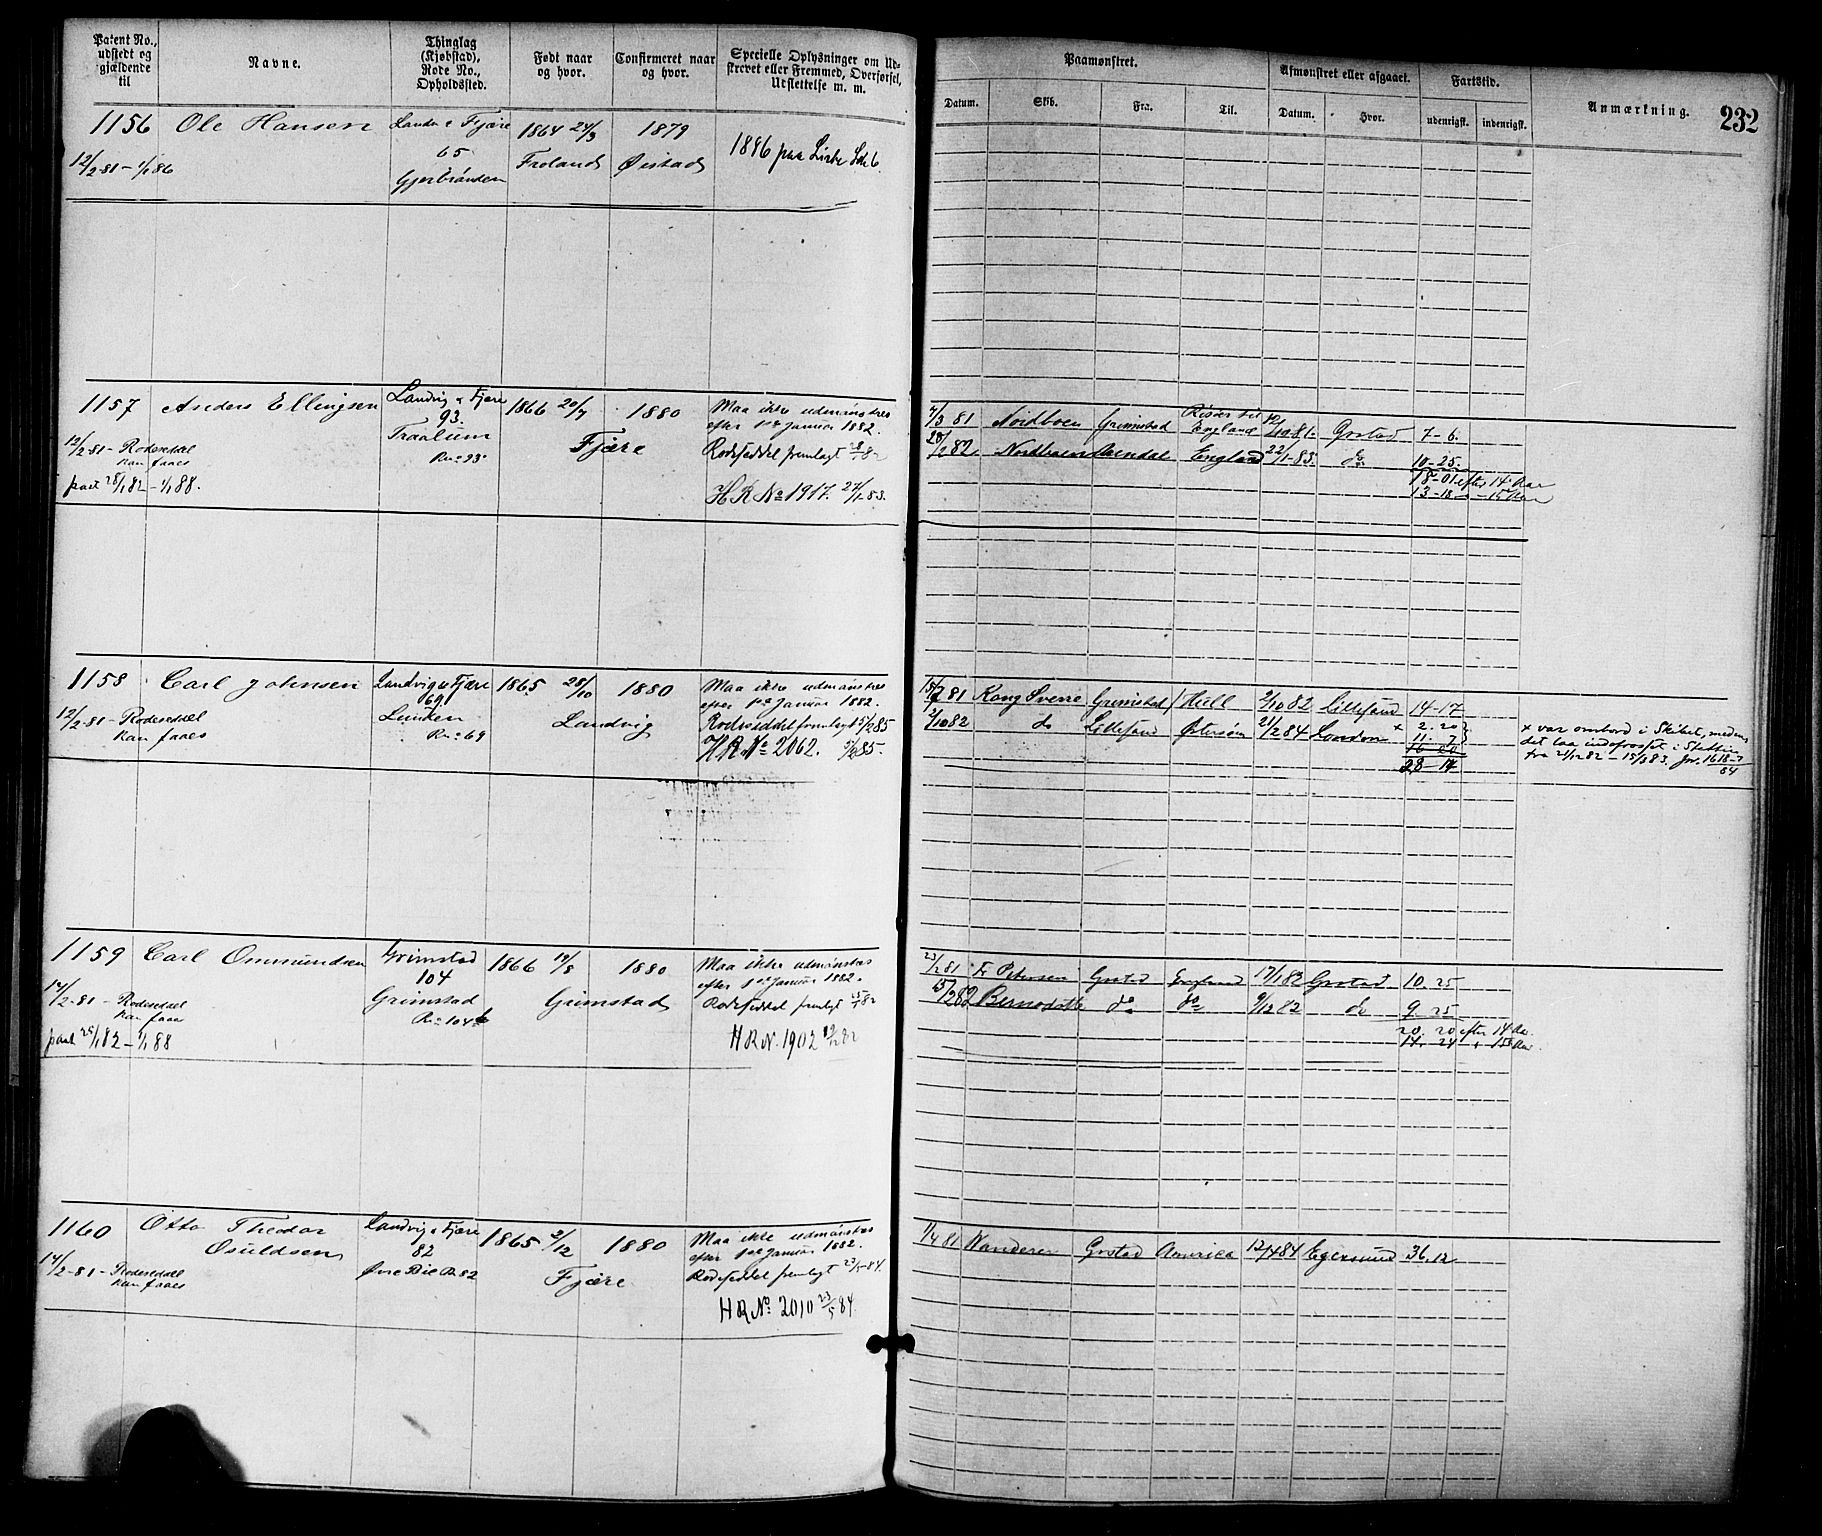 Patent No., udstedt og gjældende til
Navne.
Thinglag (Kjøbstad), Rode No., Opholdssted.
Født naar og hvor.
Confirmeret naar og hvor.
Specielle Oplysninger om Udskrevet eller Fremmed, Overførsel, Udslettelse m. m.
Paamønstret.
Afmønstret eller afgaaet.
Fartstid.
Anmærkning.
232
Datum.
Skib.
Fra.
Til.
Datum.
Hvor.
udenrigst.
indenrigst.
1156 Ole Hansen
12/2 81 – 1/1 86
65.
1864 24/3
Froland
1879
Øistad
1886 paa
1157 Anders Ellingsen
12/2-81 – Rodeseddel
kan faaes
28/1 82 – 1/1 88.
Landvig & Fjære
93.
Rn: 93
1866 20/7 1880
Fjære
Maa ikke udmønstres
efter 1ste Januar 1882.
Rodeseddel fremlagt
H R No 1917. 27/1-83.
7/3 81 Nordboen Grimstad England Grstad 7-6.
28/2 82. Nordboen Arendal England 22/1-83. do 10-25.
18-01 efter 14 Aar
13-18 - 15 Aar
1158 Carl Johnsen
12/2-81 – Rodeseddel
kan faaes
Landvig & Fjære
69
Lunden
Rn: 69
1865 28/10 1880
Landvig
Maa ikke udmønstres
efter 1ste Januar 1882.
H R No 2062.
Kong Sverre Grimstad Hull 2/10 82 Lillesand 14-17
2/10 82 do Lillesand Østersøen 21/2 84 London x 2. 20
11. 7
16 20
28-14
x var ombord i Skibet, medens
det laa indefrosset i Stettin
fra 21/12 82 – 15/3 83.
1159 Carl Ommundsen
14/2-81 – Rodeseddel
kan faaes
28/1 82 – 1/1 88
Grimstad
104
Grimstad
Rn: 104
1866 19/8 1880
Grimstad
Maa ikke udmønstres
efter 1ste Januar 1882.
Rodeseddel fremlagt
H R N. 1902
23/2 81 Fr Petersen Grstad England 17/1 82 Grstad 10. 25
do do 9/12 82 do 9. 25
20. 20 efter 14 Aar
14. 24 - 15 Aar.
1160 Otto Theodor
Osuldsen
14/2-81 – Rodeseddel
kan faaes
Landvig & Fjære
82
Øvre Bie Rn 82
1865 2/12 1880
Fjære
Maa ikke udmønstres
efter 1ste Januar 1882.
Rodeseddel fremlagt 23/5-84.
H R No 2010 23/5 84.
1/4 81 Wanderer Grstad America 12/4 84 Egersund 36. 12